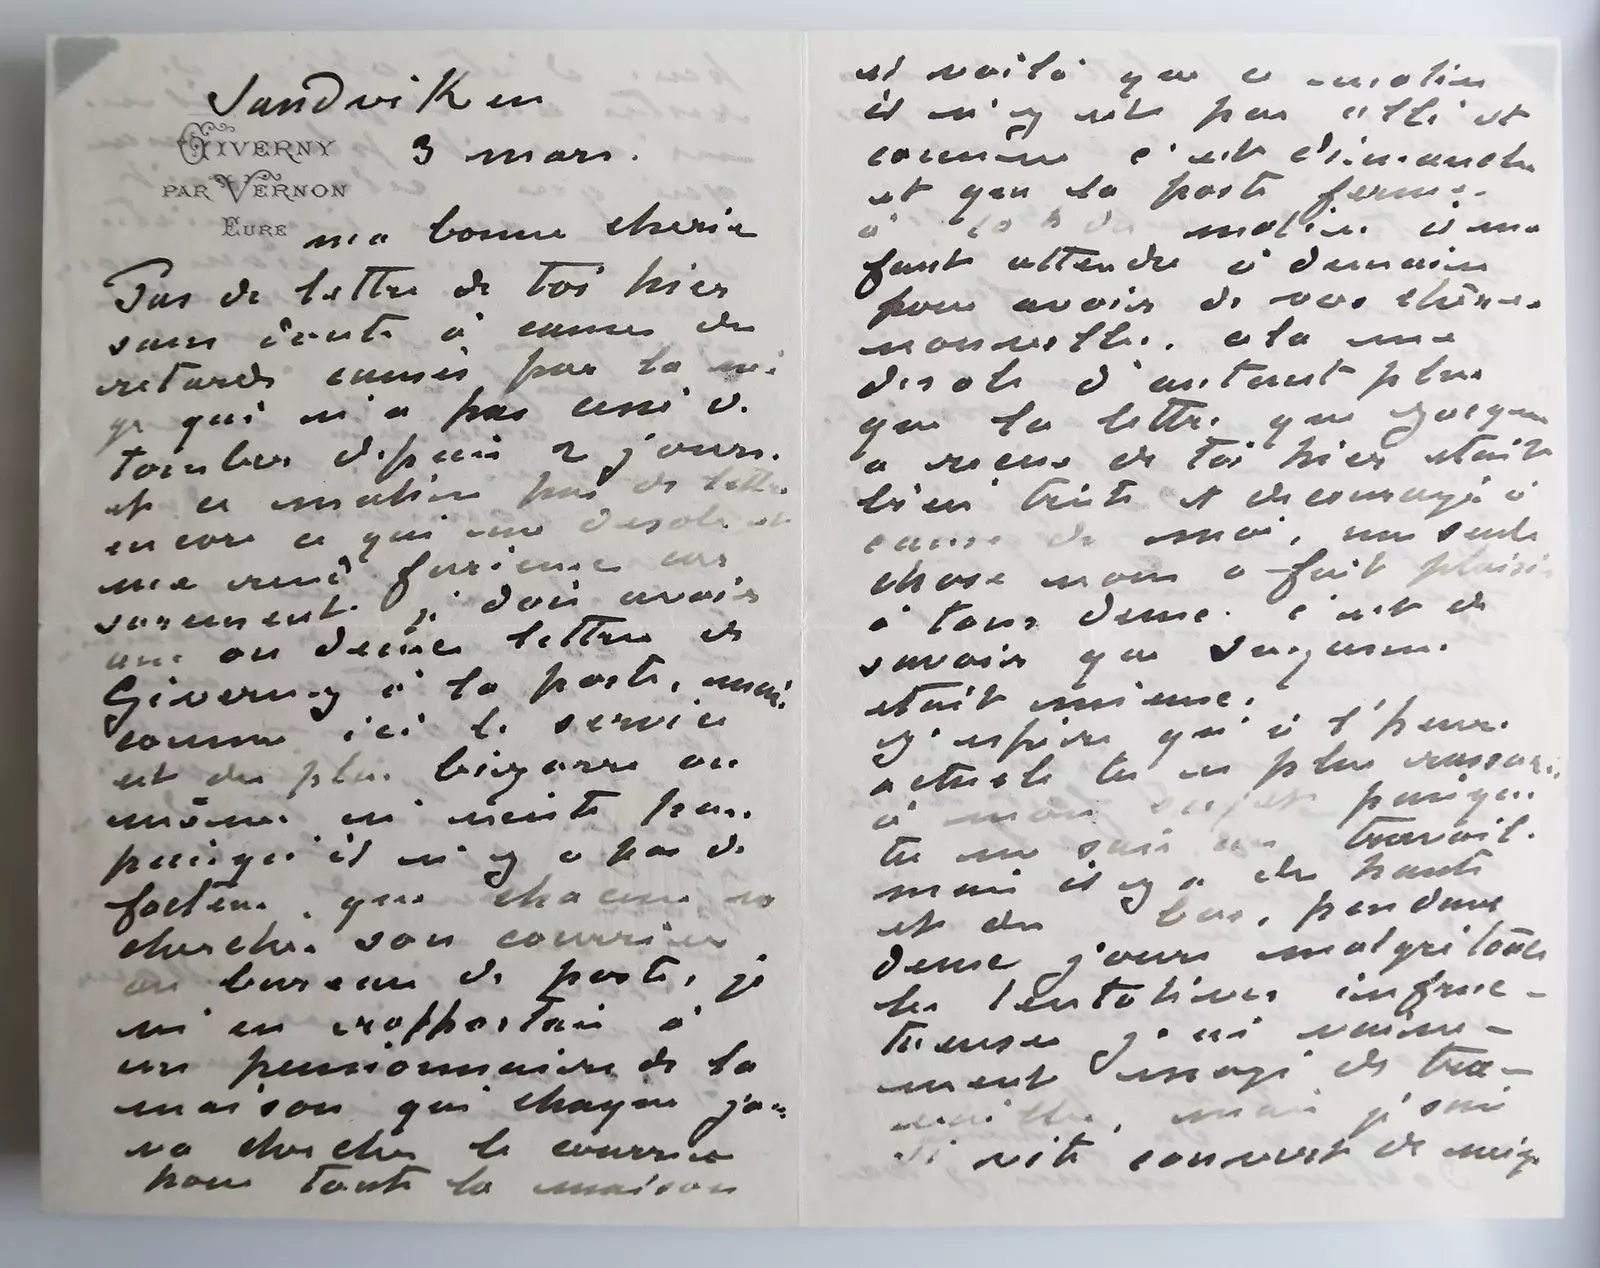 Sandviken
GIVERNY
3 mars.
PAR VERNON
EURE
ma bonne cherie
Pas de lettre de toi hier
sans doute à cause des
retards causés par la nei
ge qui n'a pas cessé de
tomber depuis 2 jours.
et ce matin pas de lettre
encore ce qui me desole et
me rend furieux car
surement je dois avoir
une ou deux lettres de
Giverny à la poste, mais
comme ici le service
est des plus bizarre ou
même n'existe pas.
puisqu'il n'y a pas de
facteur, que chacun va
chercher son courrier
au bureau de poste, je
m'en rapportais à
un pensionnaire de la
maison qui chaque jour
va chercher le courrier
pour toute la maison
et voilà que ce matin
il n'y est pas allé et
comme c'est dimanche
et que la poste ferme
à 10 h du matin il me
faut attendre à demain
pour avoir de vos chères
nouvelles. cela me
desole d'autant plus
que la lettre que Jacques
a recue de toi hier etait
bien triste et decouragée à
cause de moi, une seule
chose nous a fait plaisir
à tous deux. c'est de
savoir que Suzanne
etait mieux.
J'espère qu'à l'heure
actuelle tu es plus rassurée
à mon sujet puisque
tu me sais au travail.
mais il y a des hauts
et des bas, pendant
deux jours malgré toutes
les tentatives infruc-
tueuses j'ai vaine-
ment essayé de tra-
vailler, mais j'etais
si vite couvert de neige